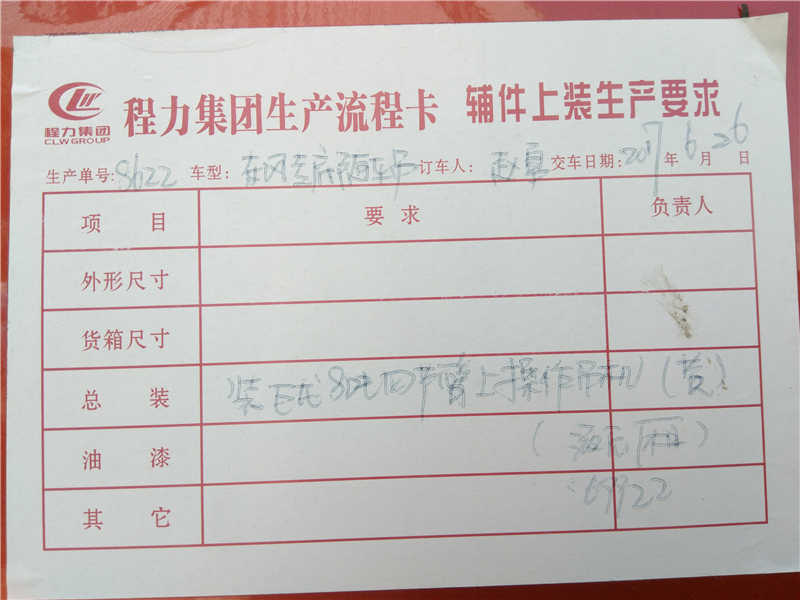 程力集团
CLWGROUP
程力集团生产流程卡 辅件上装生产要求
生产单号:8622 车型: 订车人: 交车日期:2017年6月26日
项 目 要 求 负责人
外形尺寸
货箱尺寸
总 装 装 8吨 上操作吊机(黄)
油 漆
其 它